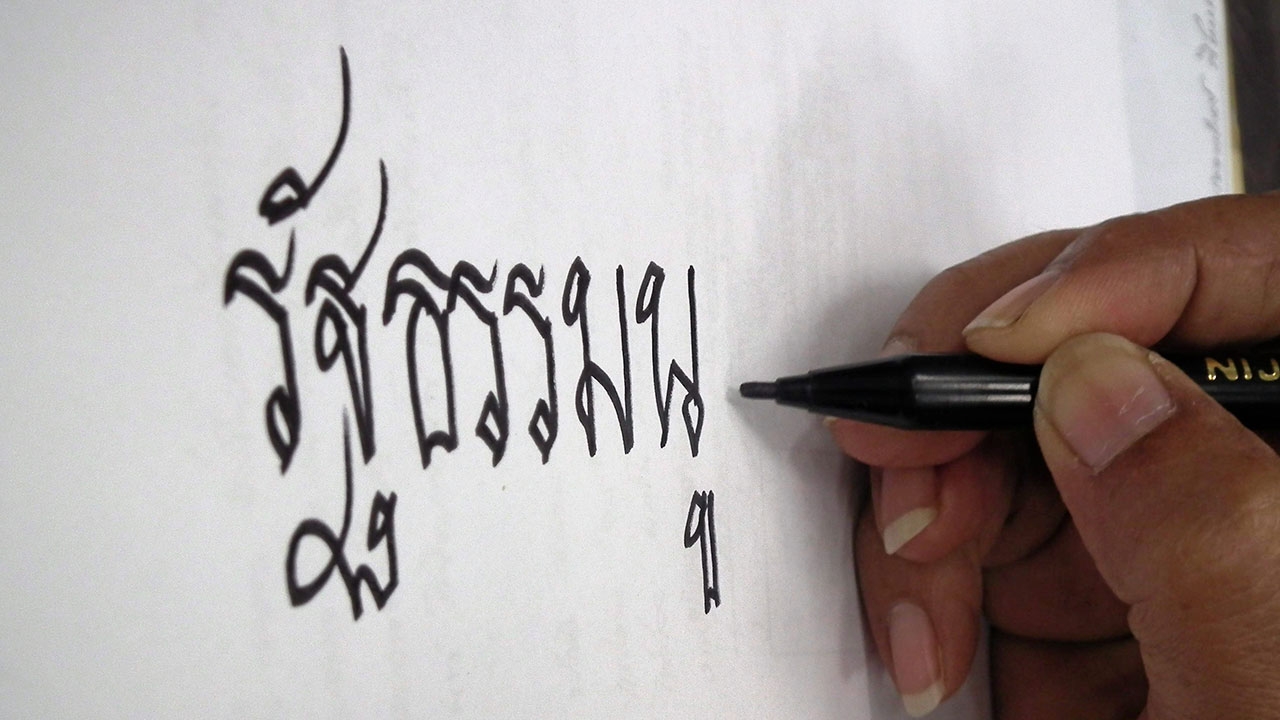 รัฐธรรมนู
NIJ